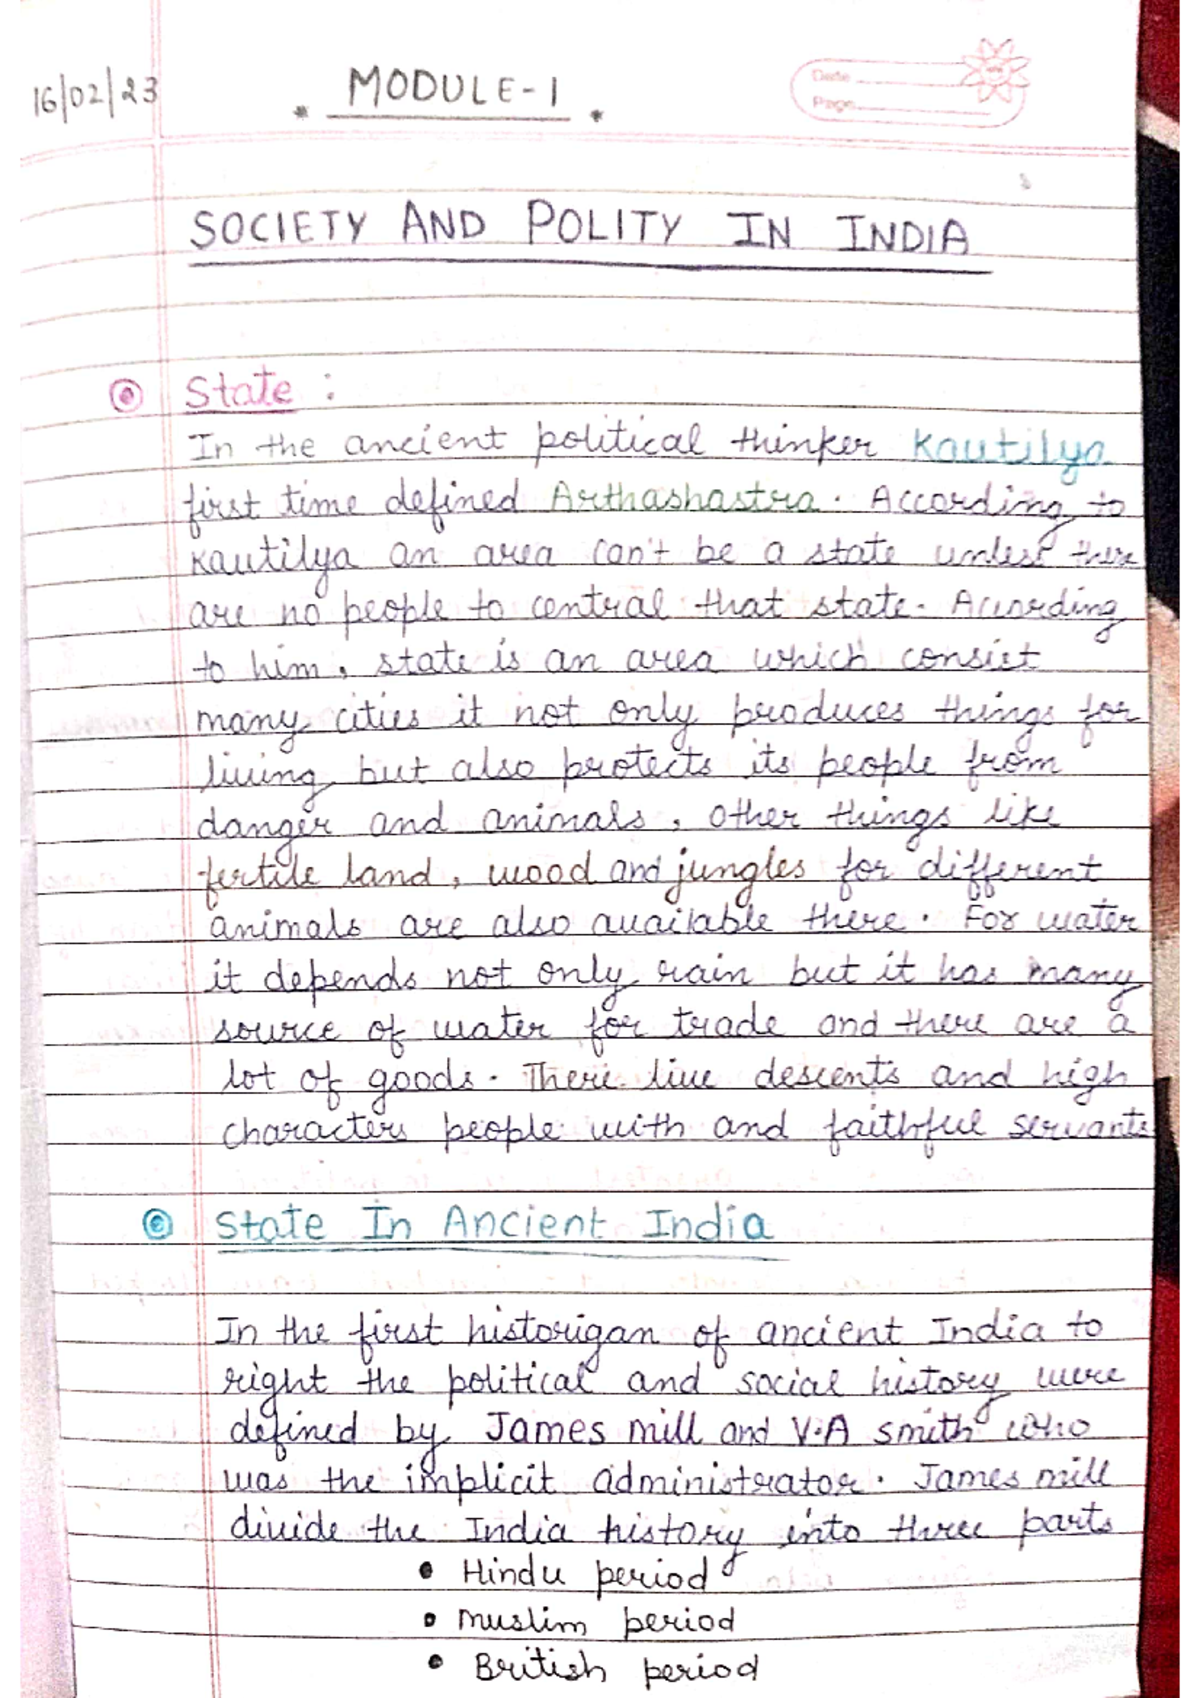 16/02/23
MODULE-1
Date
Page
SOCIETY AND POLITY IN INDIA
State :
In the ancient political thinker Kautilya
first time defined Arthashastra. According to
Kautilya an area can't be a state unless there
are no people to central that state. According
to him, state is an area which consist
many cities it not only produces things for
living but also protects its people from
danger and animals, other things like
fertile land, wood and jungles for different
animals are also available there. For water
it depends not only rain but it has many
source of water for trade and there are a
lot of goods. There live descents and high
characters people with and faithful servants
State In Ancient India
In the first historigan of ancient India to
right the political and social history were
defined by James mill and V.A smith who
was the implicit administrator. James mill
divide the India history into three parts
• Hindu period
• Muslim period
• British period